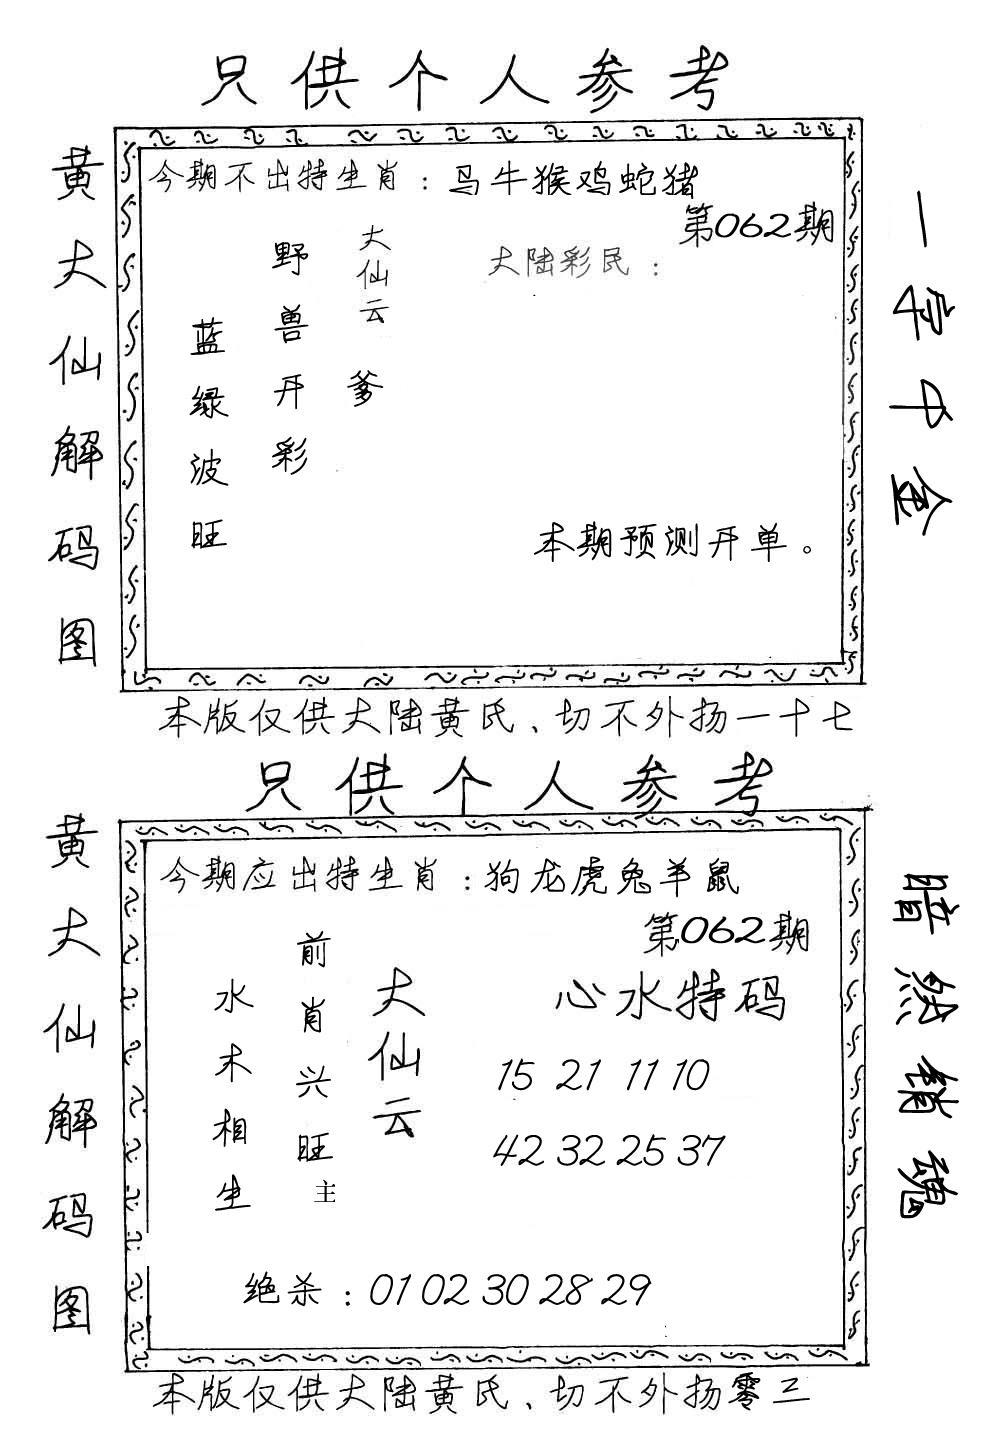 只供个人参考
黄大仙解码图
今期不出特生肖：马牛猴鸡蛇猪
第062期
大陆彩民：
大仙云
爹
野兽开彩
蓝绿波旺
本期预测开单。
一字中金
本版仅供大陆黄氏、切不外扬一十七
只供个人参考
黄大仙解码图
今期应出特生肖：狗龙虎兔羊鼠
第062期
大仙云
前肖兴旺主
水木相生
心水特码
15 21 11 10
42 32 25 37
绝杀：01 02 30 28 29
暗然销魂
本版仅供大陆黄氏、切不外扬零三